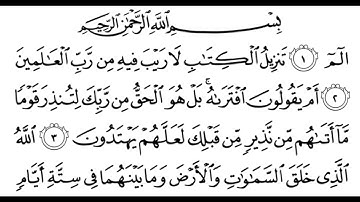 بِسْمِ اللَّهِ الرَّحْمَٰنِ الرَّحِيمِ
الٓمٓ ١ تَنزِيلُ الْكِتَابِ لَا رَيْبَ فِيهِ مِن رَّبِّ الْعَالَمِينَ
٢ أَمْ يَقُولُونَ افْتَرَىٰهُ ۚ بَلْ هُوَ الْحَقُّ مِن رَّبِّكَ لِتُنذِرَ قَوْمًا
مَّآ أَتَىٰهُم مِّن نَّذِيرٍ مِّن قَبْلِكَ لَعَلَّهُمْ يَهْتَدُونَ ٣ اللَّهُ
الَّذِي خَلَقَ السَّمَٰوَٰتِ وَالْأَرْضَ وَمَا بَيْنَهُمَا فِي سِتَّةِ أَيَّامٍ